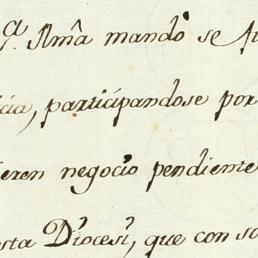 a. Alma mandó se
cia, participandose por
eren negocio pendiente
sta Diocesi, que con so